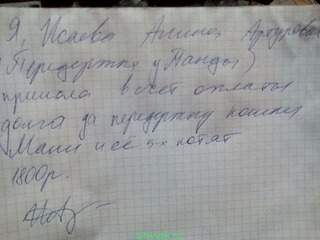 Я, Исаева Алина Артуровна
(Передержка у Панды)
приняла в счет оплаты
долга за передержку кошки
Мани и её 5х котят
1800р.